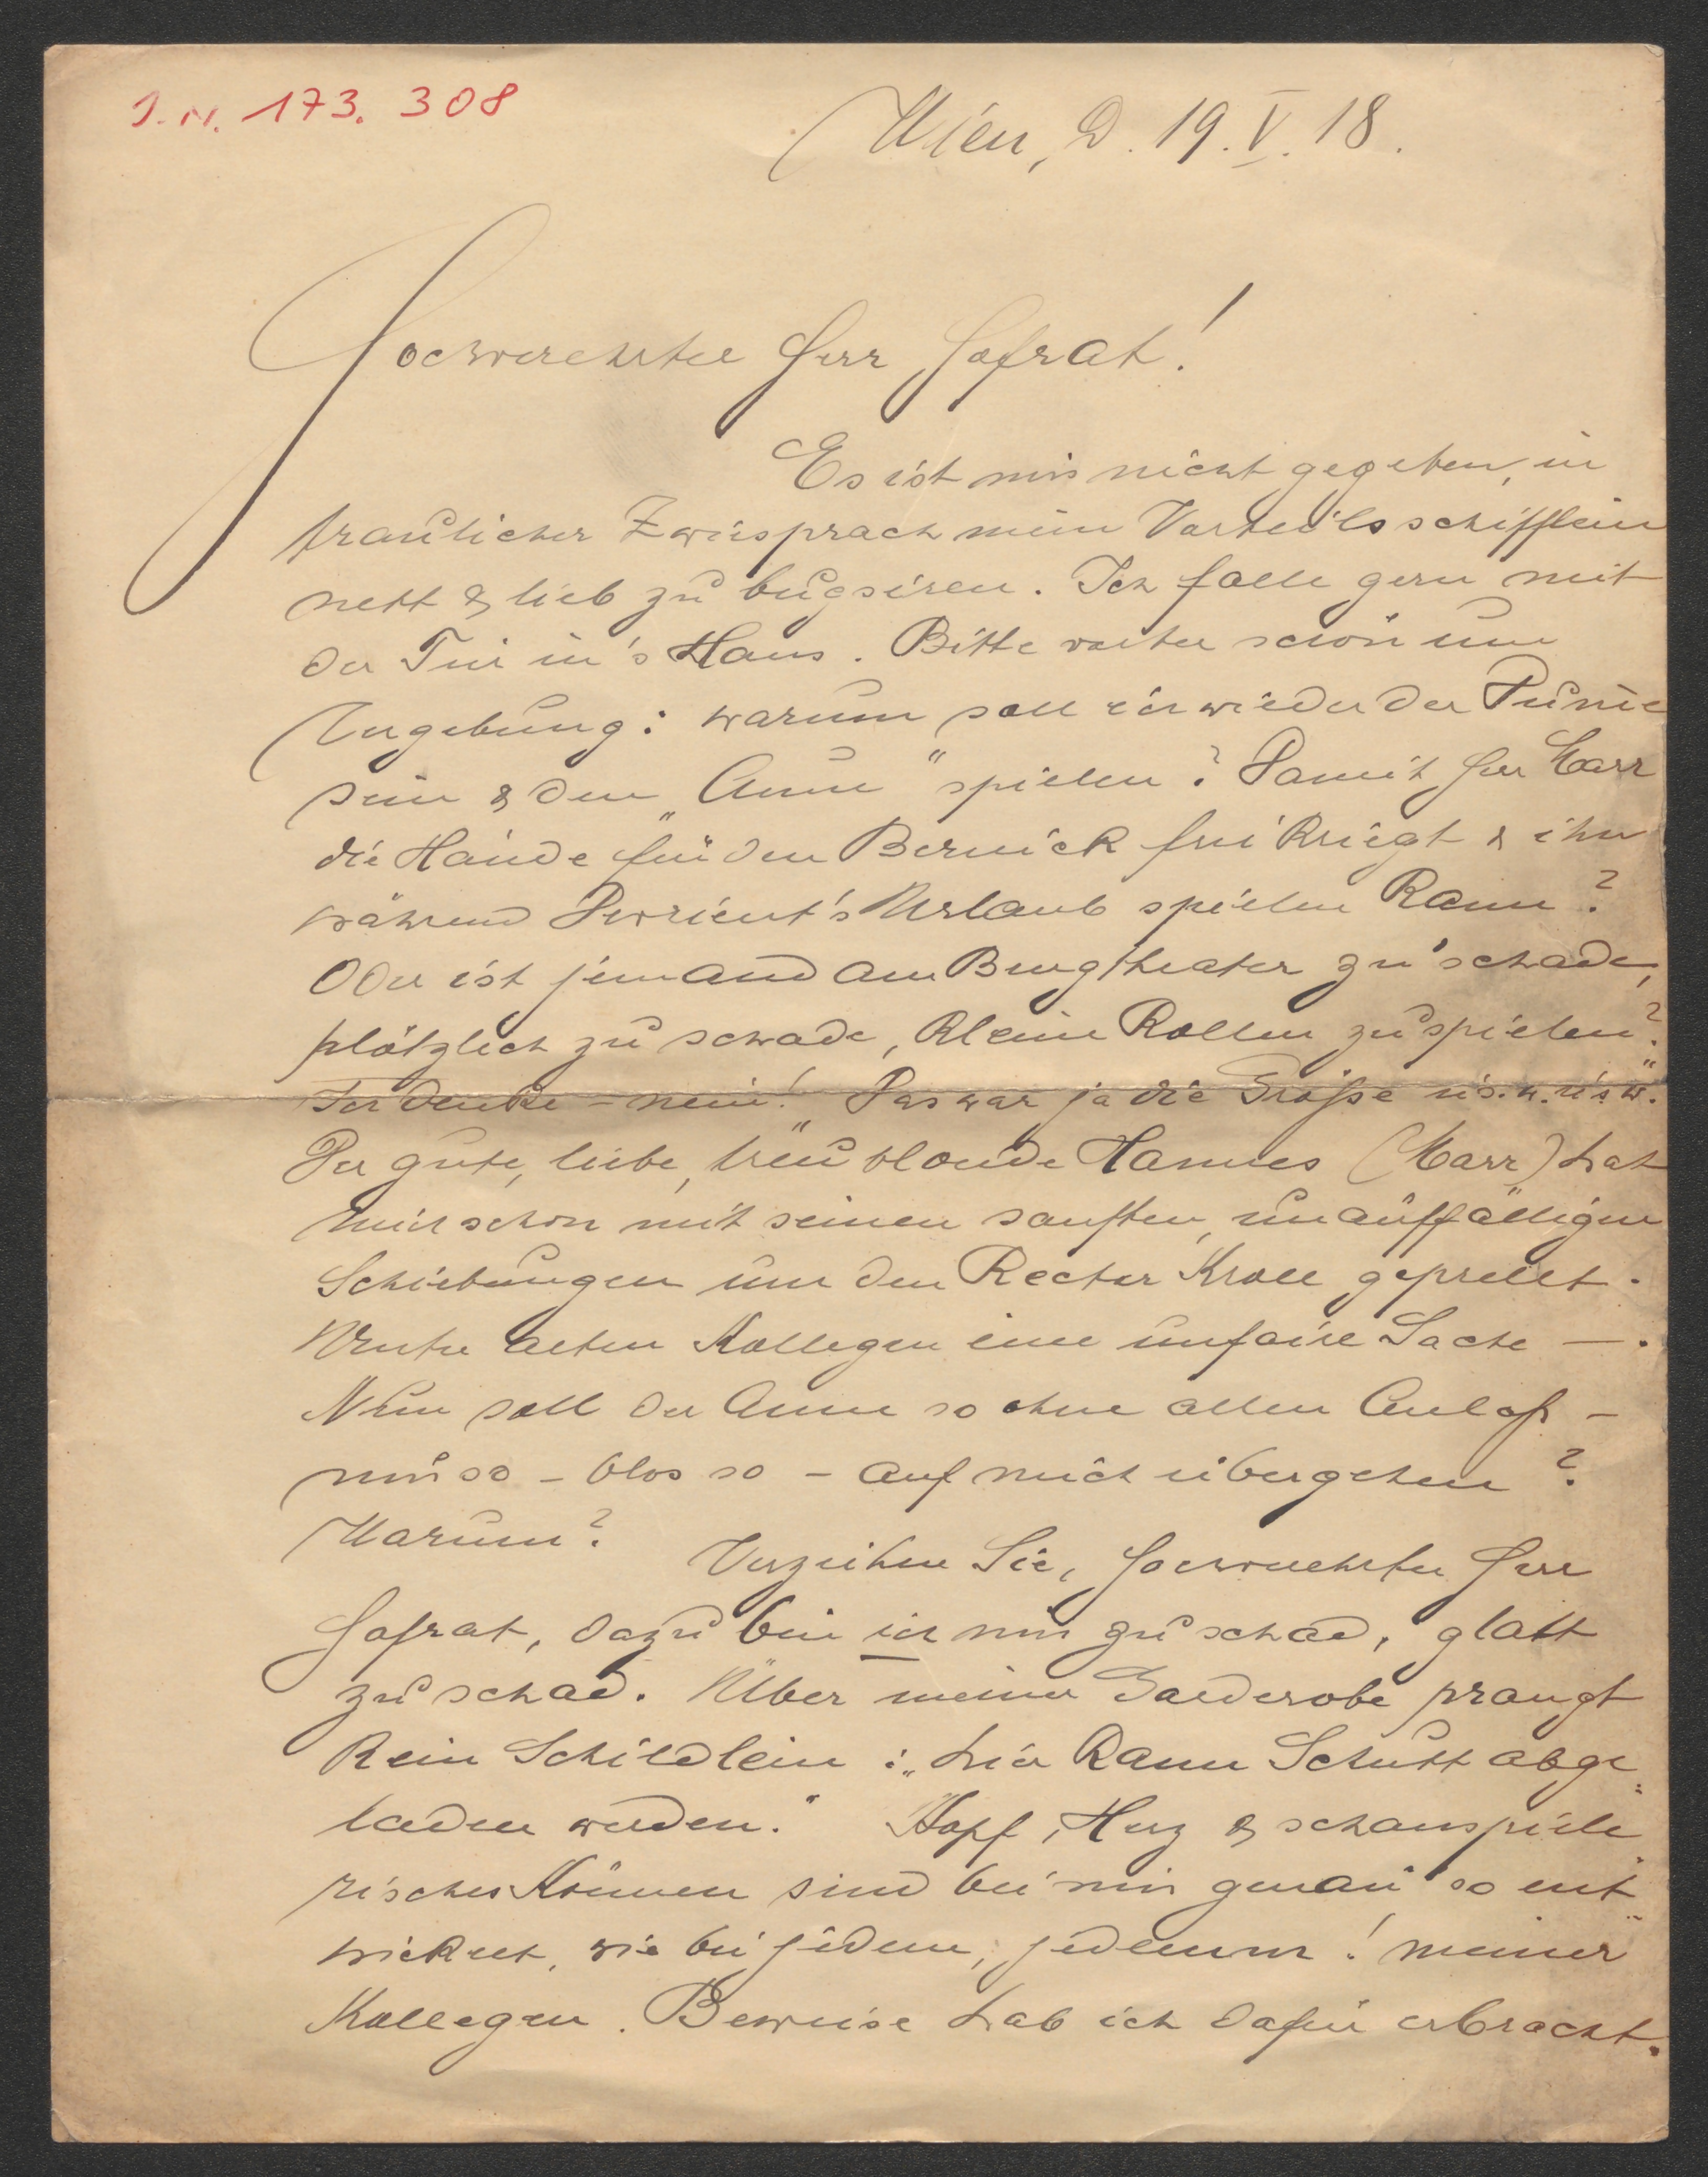 J.N. 173.308
Wien, d. 19.V.18.
Hochverehrter Herr Hofrat!
Es ist mir nicht gegeben, in
traulicher Zwiesprach mein Vorteilsschifflein
nett & lieb zu bugsiren. Ich falle gern mit
der Tür in's Haus. Bitte weiter schön um
Vergebung: warum soll ich wieder der
sein & den „Aune" spielen? Damit Herr Marr
die Hände für den Bernick frei kriegt & ihn
während Devrient's Urlaub spielen kann?
Oder ist jemand am Burgtheater zu schade,
plötzlich zu schade, kleine Rollen zu spielen?
Ich denke – nein! „Das war ja die Größe u.s.w. u.s.w."
Der gute, liebe, treu blonde Hannes (Marr) hat
mich schon mit seinen sanften, unauffälligen
Schiebungen um den Rector Kroll geprellt.
Unter alten Kollegen eine unfaire Sache –.
Nun soll der Aune so ohne allen Anlaß –
nur so – blos so – auf mich übergehen?
Warum?
Verzeihen Sie, hochverehrter Herr
Hofrat, dazu bin ich mir zu schad, glatt
zu schad. Über meiner Garderobe prangt
kein Schildlein: „hier kann Schutt abge-
laden werden." Kopf, Herz & schauspiele-
risches Können sind bei mir genau so ent-
wickelt, wie bei jedem, jedem! meiner
Kollegen. Beweise hab ich dafür erbracht.